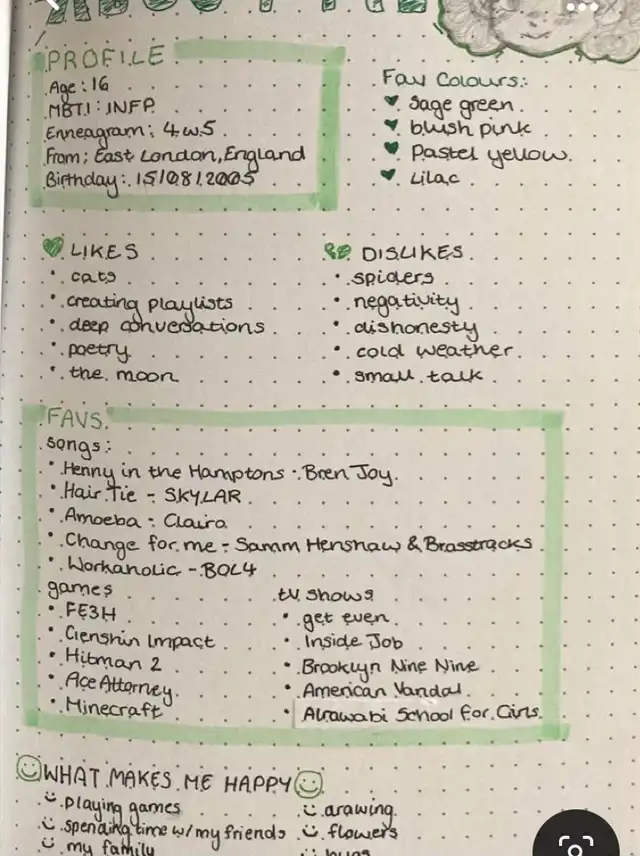 ABOUT ME
PROFILE
Age: 16
MBTI: INFP
Enneagram: 4w5
From: East London, England
Birthday: 15/08/2005
Fav Colours:
sage green
blush pink
Pastel yellow
Lilac
LIKES
cats
creating playlists
deep conversations
poetry
the moon
DISLIKES
spiders
negativity
dishonesty
cold weather
small talk
FAVS
songs:
Henny in the Hamptons - Bren Joy
Hair Tie - SKYLAR
Amoeba - Clairo
Change for me - Samm Henshaw & Brasstracks
Workaholic - BOL4
games
FE3H
Genshin Impact
Hitman 2
Ace Attorney
Minecraft
tv shows
get even
Inside Job
Brooklyn Nine Nine
American Vandal
Alrawabi School for Girls
WHAT MAKES ME HAPPY
playing games
spending time w/ my friends
my family
drawing
flowers
hugs